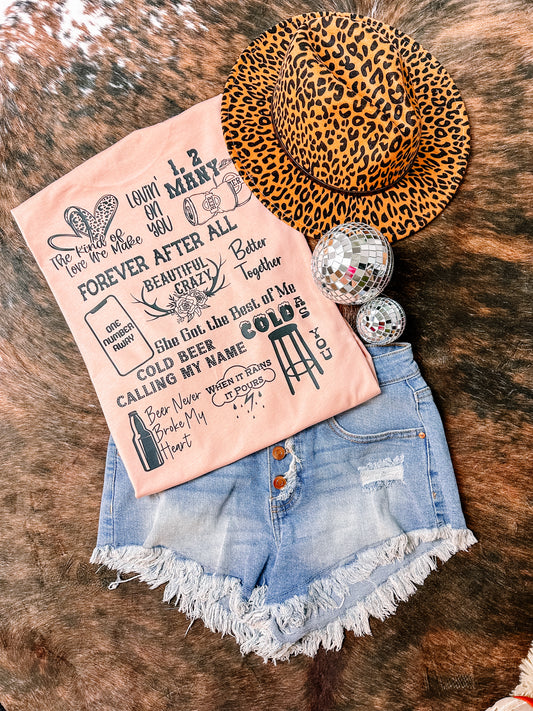 The Kind of
Love We Make
LOVIN'
ON
YOU
1, 2
MANY
FOREVER AFTER ALL
BEAUTIFUL
CRAZY
Better
Together
ONE
NUMBER
AWAY
She Got the Best of Me
COLD BEER
CALLING MY NAME
COLD AS
YOU
WHEN IT RAINS
IT POURS
Beer Never
Broke My
Heart